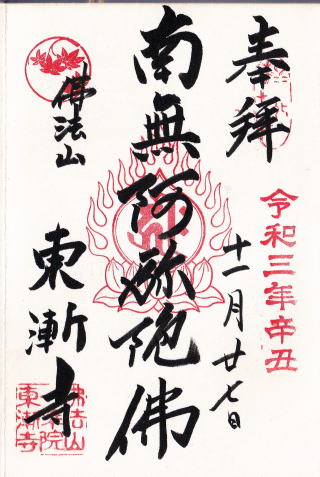 奉拝
令和三年辛丑
十一月廿七日
南無阿弥陀佛
佛法山
東漸寺
佛法山
東漸寺